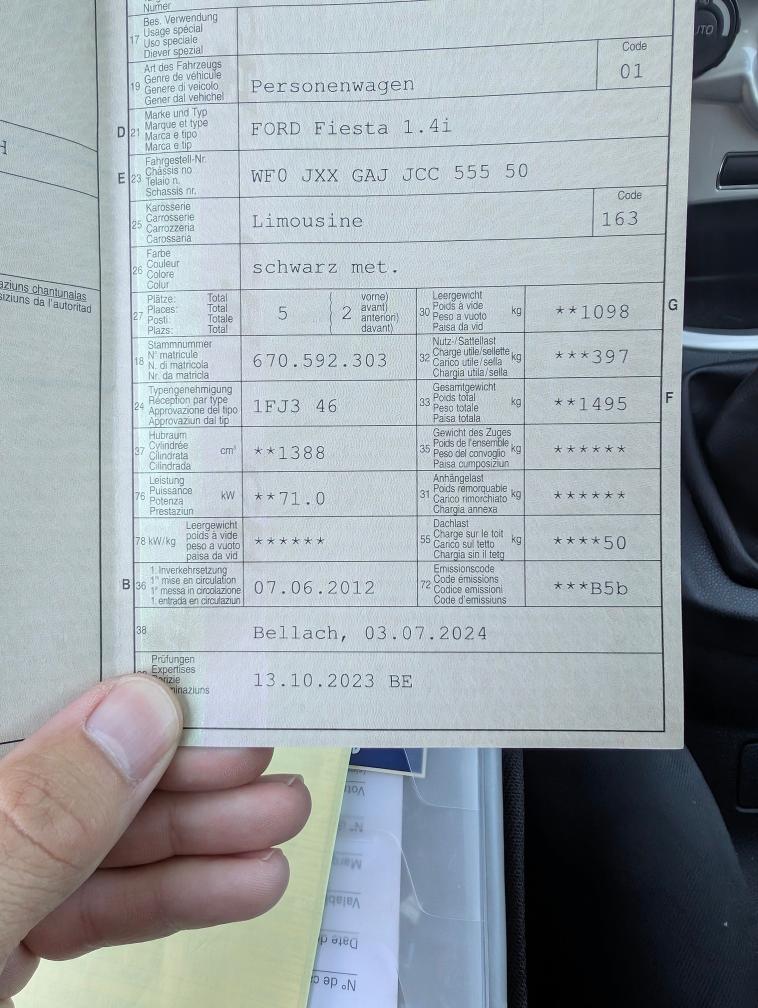 Numer
17
Bes. Verwendung
Usage spécial
Uso speciale
Diever spezial
19
Art des Fahrzeugs
Genre de véhicule
Genere di veicolo
Gener dal vehichel
Personenwagen
Code
01
D 21
Marke und Typ
Marque et type
Marca e tipo
Marca e tip
FORD Fiesta 1.4i
E 23
Fahrgestell-Nr.
Châssis no
Telaio n.
Schassis nr.
WF0 JXX GAJ JCC 555 50
25
Karosserie
Carrosserie
Carrozzeria
Carossaria
Limousine
Code
163
26
Farbe
Couleur
Colore
Colur
schwarz met.
27
Plätze: Total
Places: Total
Posti: Totale
Plazs: Total
5
( 2
vorne)
avant)
anteriori)
davant)
30
Leergewicht
Poids à vide
Peso a vuoto
Paisa da vid
kg
**1098
G
18
Stammnummer
N° matricule
N. di matricola
Nr. da matricla
670.592.303
32
Nutz-/Sattellast
Charge utile/sellette
Carico utile/sella
Chargia utila/sella
kg
***397
24
Typengenehmigung
Réception par type
Approvazione del tipo
Approvaziun dal tip
1FJ3 46
33
Gesamtgewicht
Poids total
Peso totale
Paisa totala
kg
**1495
F
37
Hubraum
Cylindrée
Cilindrata
Cilindrada
cm³
**1388
35
Gewicht des Zuges
Poids de l'ensemble
Peso del convoglio
Paisa cumposiziun
kg
******
76
Leistung
Puissance
Potenza
Prestaziun
kW
**71.0
31
Anhängelast
Poids remorquable
Carico rimorchiato
Chargia annexa
kg
******
78 kW/kg
Leergewicht
poids à vide
peso a vuoto
paisa da vid
******
55
Dachlast
Charge sur le toit
Carico sul tetto
Chargia sin il tetg
kg
****50
B 36
1. Inverkehrsetzung
1re mise en circulation
1a messa in circolazione
1. entrada en circulaziun
07.06.2012
72
Emissionscode
Code émissions
Codice emissioni
Code d'emissiuns
***B5b
38
Bellach, 03.07.2024
Prüfungen
Expertises
13.10.2023 BE
aziuns chantunalas
siziuns da l'autoritad
UTO